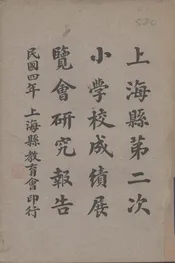 上海縣第二次
小學校成績展
覽會研究報告
民國四年　上海縣教育會印行